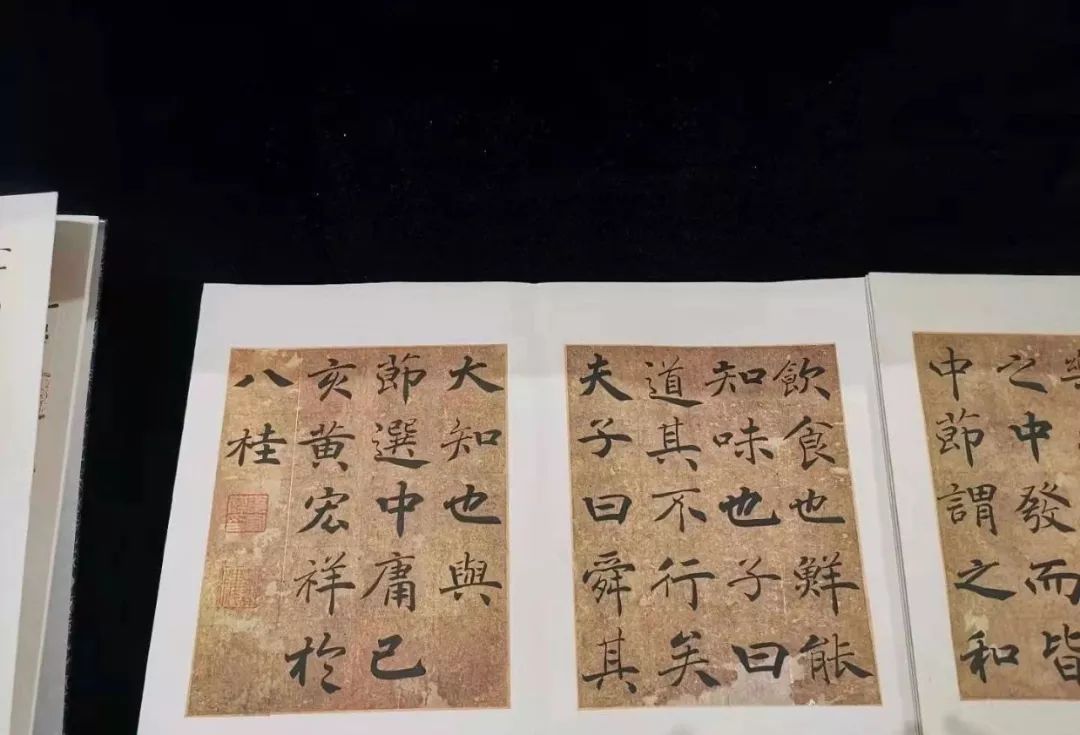 之中發而皆
中節謂之和
飲食也鮮能
知味也子曰
道其不行矣
夫子曰舜其
大知也與
節選中庸己
亥黄宏祥於
八桂